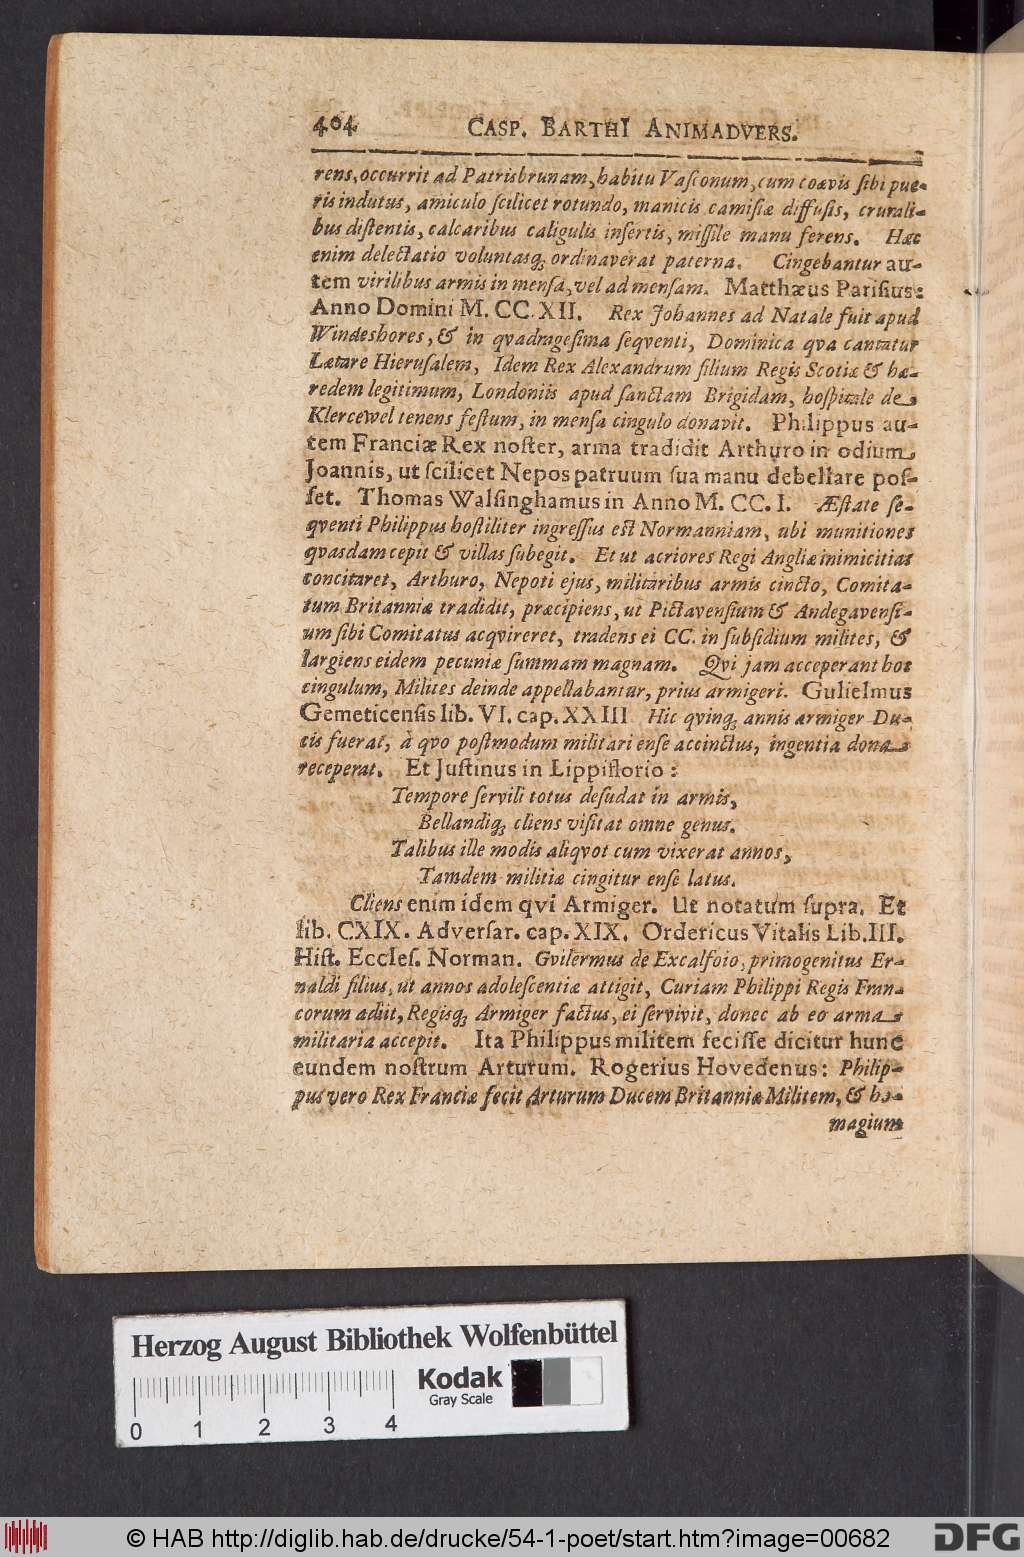 404 CASP. BARTHI ANIMADVERS.
rens, occurrit ad Patris brunam, habitu Vasconum, cum coævis sibi pue-
ris indutus, amiculo scilicet rotundo, manicis camisiæ diffusis, crurali-
bus distentis, calcaribus caligulis insertis, missile manu ferens. Hæc
enim delectatio voluntasq; ordinaverat paterna. Cingebantur au-
tem virilibus armis in mensa, vel ad mensam. Matthæus Parisius:
Anno Domini M. CC. XII. Rex Johannes ad Natale fuit apud
Windeshores, & in qvadragesima seqventi, Dominica qva cantatur
Lætare Hierusalem, Idem Rex Alexandrum filium Regis Scotiæ & hæ-
redem legitimum, Londoniis apud sanctam Brigidam, hospitale de
Klercewel tenens festum, in mensa cingulo donavit. Philippus au-
tem Franciæ Rex noster, arma tradidit Arthuro in odium
Joannis, ut scilicet Nepos patruum sua manu debellare pos-
set. Thomas Walsinghamus in Anno M. CC. I. Æstate se-
qventi Philippus hostiliter ingressus est Normanniam, ubi munitiones
qvasdam cepit & villas subegit. Et ut acriores Regi Angliæ inimicitias
concitaret, Arthuro, Nepoti ejus, militaribus armis cincto, Comita-
tum Britanniæ tradidit, præcipiens, ut Pictavensium & Andegavensi-
um sibi Comitatus acqvireret, tradens ei CC. in subsidium milites, &
largiens eidem pecuniæ summam magnam. Qvi jam acceperant hoc
cingulum, Milites deinde appellabantur, prius armigeri. Gulielmus
Gemeticensis lib. VI. cap. XXIII Hic qvinq; annis armiger Du-
cis fuerat, à qvo postmodum militari ense accinctus, ingentia dona
receperat. Et Justinus in Lippiflorio:
Tempore servili totus desudat in armis,
Bellandiq; cliens visitat omne genus.
Talibus ille modis aliqvot cum vixerat annos,
Tamdem militiæ cingitur ense latus.
Cliens enim idem qvi Armiger. Ut notatum supra. Et
lib. CXIX. Adversar. cap. XIX. Ordericus Vitalis Lib. III.
Hist. Eccles. Norman. Gvilermus de Excalfoio, primogenitus Er-
naldi filius, ut annos adolescentiæ attigit, Curiam Philippi Regis Fran-
corum adiit, Regisq; Armiger factus, ei servivit, donec ab eo arma
militaria accepit. Ita Philippus militem fecisse dicitur hunc
eundem nostrum Arturum. Rogerius Hovedenus: Philip-
pus vero Rex Franciæ fecit Arturum Ducem Britanniæ Militem, & ho-
magium
Herzog August Bibliothek Wolfenbüttel
Kodak
Gray Scale
0 1 2 3 4
© HAB http://diglib.hab.de/drucke/54-1-poet/start.htm?image=00682
DFG